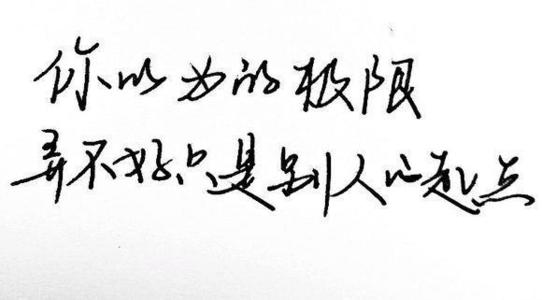 你以为的极限
弄不好只是别人的起点